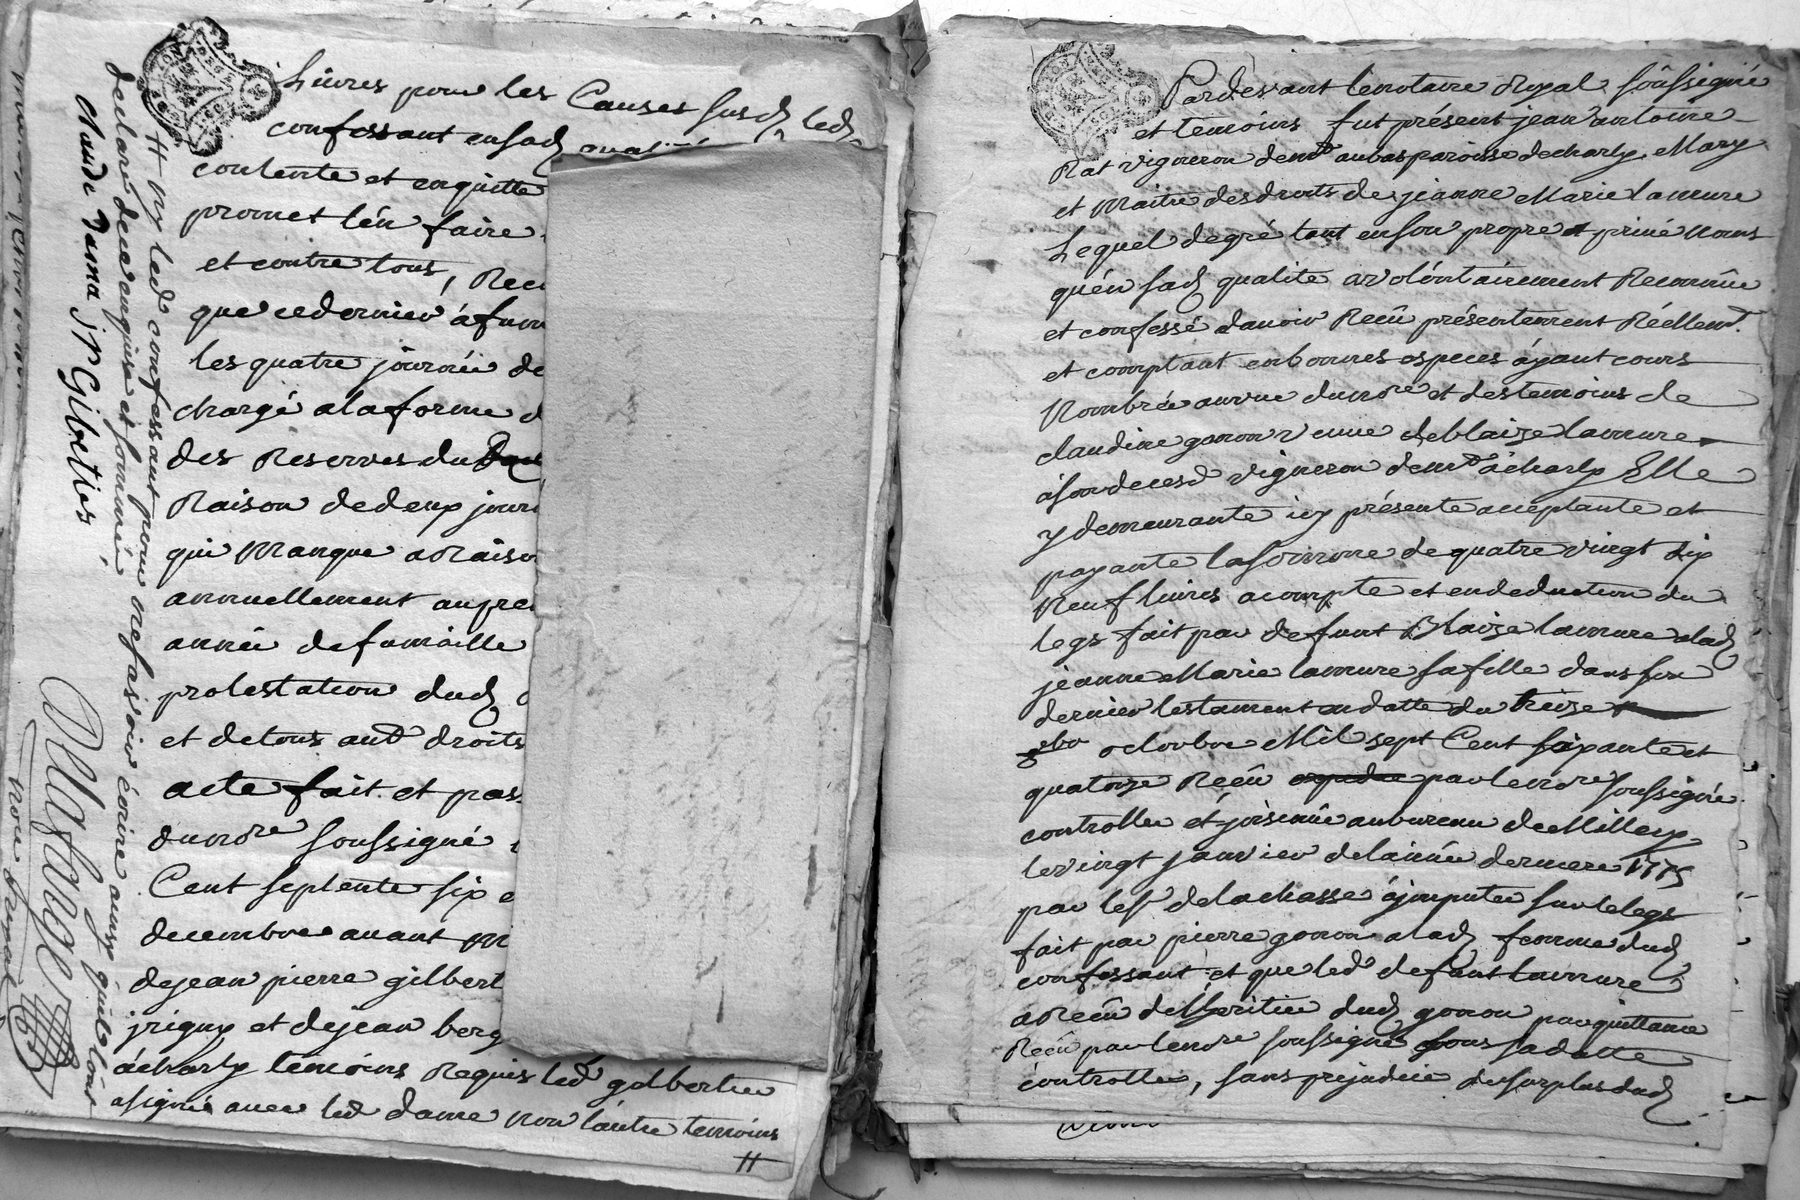 Livres pour les Causes susd led
confessant en sad
contente et enquitte
promet l'en faire
et contre tous, Rec
que ce dernier á fum
les quatre journée de
chargé a la forme d
des Reserves du
Raison de deux jour
qui Manque a Raison
annuellement au pre
année de fumaille
protestation dud
et de tous autd droits
acte fait et pas
du nore soussigné
Cent septente six e
decembre auant mi
de jean pierre gilbert
jrigny et de jean berg
á charly temoins Requis led gilbertier
a signé auec led dame non l'autre temoins
#
# ny led confessant pour ne sauoir écrire ainsy qu'ils l'ont
declaré de ce enquis et sommé
Claude dama jp Gilbetier
Par devant le notaire Royal soussigné
et temoins fut présent jean antoine
Rat vigneron demt au bas paroisse de charly Mary
et Maitre des droits de jeanne Marie lamure
Lequel de gré tant en son propre et privé Nom
qu'en sad qualite a volontairement Reconnu
et confessé d'auoir Reçû présentement Réellemt
et comptant en bonnes especes áyant cours
Nombrée au vue du nore et des temoins de
claudine gonon veuue de blaize lamure
á son deced vigneron demt á charly Elle
y demeurante icy présente acceptante et
payante la somme de quatre vingt dix
Neuf livres a compte et en deduction du
legs fait par defunt Blaize lamure a lad
jeanne Marie lamure sa fille dans son
dernier testament en datte du treize
octoubre Mil sept Cent soixante et
quatorze Reçû par le nore soussigné
controllé et jnsinué au bureau de Millery
le vingt janvier de l'année derniere 1775
par le sr delachasse á jmputer sur le legs
fait par pierre gonon a lad femme dud
confessant et que led defunt lamure
a Reçû de l'heritier dud gonon par quittance
Reçû par le nore soussigné sous sa datte
controllé, sans prejudice du surplus dud